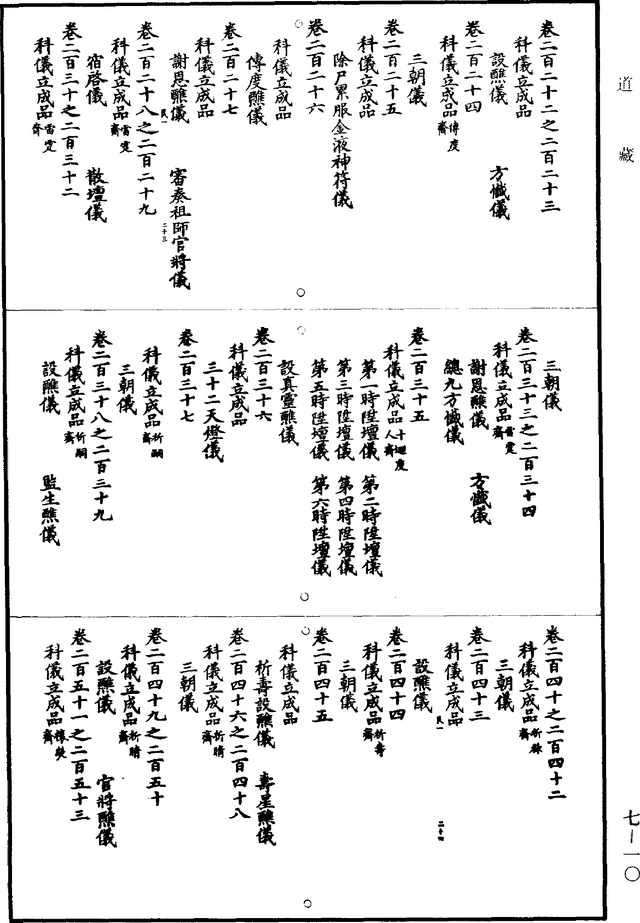 道藏
七-一〇
卷二百二十二之二百二十三
科儀立成品
設醮儀 方懺儀
卷二百二十四
科儀立成品傳度齋
三朝儀
卷二百二十五
科儀立成品
除尸累服金液神符儀
卷二百二十六
科儀立成品
傳度醮儀
卷二百二十七
科儀立成品
謝恩醮儀 審奏祖師官將儀
民一 二十三
卷二百二十八之二百二十九
科儀立成品雷霆齋
宿啓儀 散壇儀
卷二百三十之二百三十二
科儀立成品雷霆齋
三朝儀
卷二百三十三之二百三十四
科儀立成品雷霆齋
謝恩醮儀 方懺儀
總九方懺儀
卷二百三十五
科儀立成品十迴度人齋
第一時陞壇儀 第二時陞壇儀
第三時陞壇儀 第四時陞壇儀
第五時陞壇儀 第六時陞壇儀
設真靈醮儀
卷二百三十六
科儀立成品
三十二天燈儀
卷二百三十七
科儀立成品祈嗣齋
三朝儀
卷二百三十八之二百三十九
科儀立成品祈嗣齋
設醮儀 監生醮儀
卷二百四十之二百四十二
科儀立成品祈祿齋
三朝儀
卷二百四十三
科儀立成品
設醮儀
民一 二十四
卷二百四十四
科儀立成品祈壽齋
三朝儀
卷二百四十五
科儀立成品
祈壽設醮儀 壽星醮儀
卷二百四十六之二百四十八
科儀立成品祈晴齋
三朝儀
卷二百四十九之二百五十
科儀立成品祈晴齋
設醮儀 官將醮儀
卷二百五十一之二百五十三
科儀立成品禳熒齋